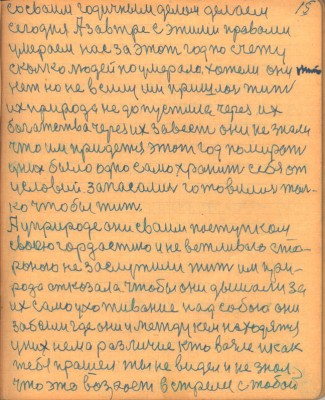 со своим годичным делом делаем
сегодня А завтре с этими правами
умираем нас за этот год по счету
сколко людей поумирало хотели они
нет но не всему им пришлос жит
их природа не допустила через их
богатства через их завист они не знали
что им придется этот год помират
у них было одно само хранит себя от
условий запасалис готовилис тол-
ко чтобы жит
А у природе они своим поступком
своею гордостю и не вежливого сто-
роною не заслужили жит им при-
рода отказала чтобы они дышали За
их самоухоживание над собою они
забыли где они и между кем находятся
у них нема различие кто возле и как
тебя прошел ты не видел и не знал
что это возгост встрети с тобой